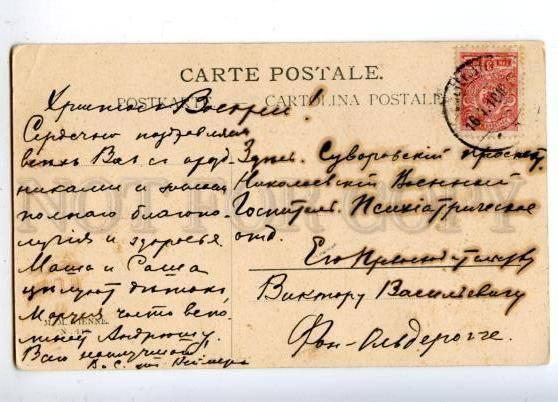 CARTE POSTALE.
POSTKARTE CARTOLINA POSTALE
Христосъ Воскресе!
Сердечно поздравляемъ
всѣхъ Васъ съ празд-
никами и желаемъ
полнаго благопо-
лучія и здоровья
Маша и Саша
цѣлуютъ
часто вспо-
Андрюшу.
Здѣсь. Суворовскій проспектъ,
Николаевскій Военный
Госпиталь. Психіатрическое
отд.
Его Превосходительству
Виктору Васильевичу
Фонъ-Ольдерогге.
M. M. VIENNE.
NOT FOR COPY